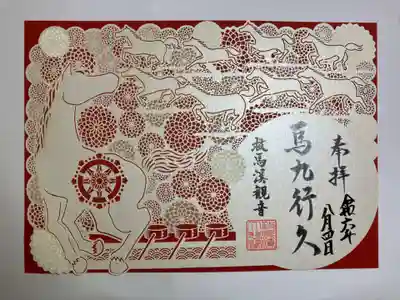 奉拝
令和六年
八月四日
馬九行久
放馬渓観音